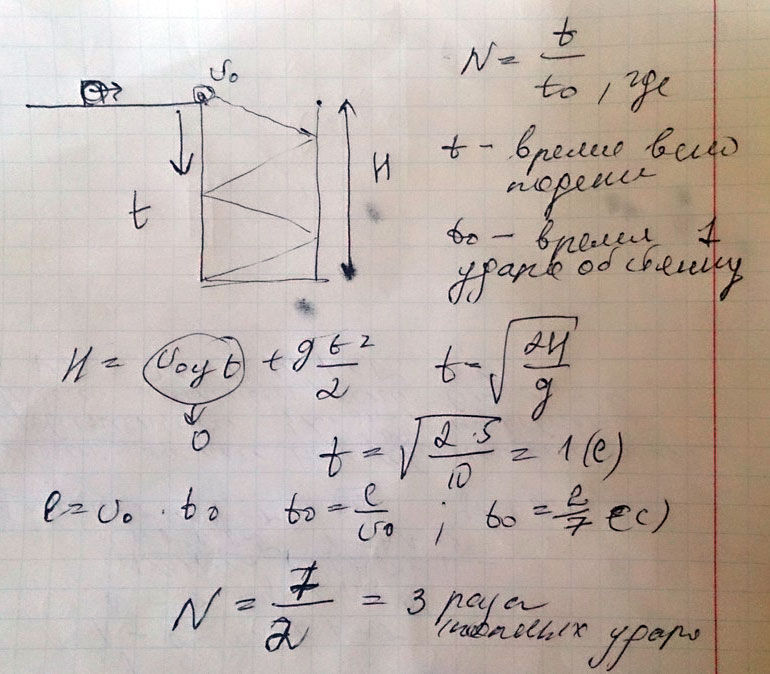 υ₀
N = t/t₀, где
t - время всего
падени
t
H
t₀ - время 1
удара об стенку
H = υ₀y t + g t²/2
t = √(2H/g)
0
t = √(2·5/10) = 1 (с)
l = υ₀ · t₀ t₀ = l/υ₀ ; t₀ = 2/7 (с)
N = 7/2 = 3 раза
удара